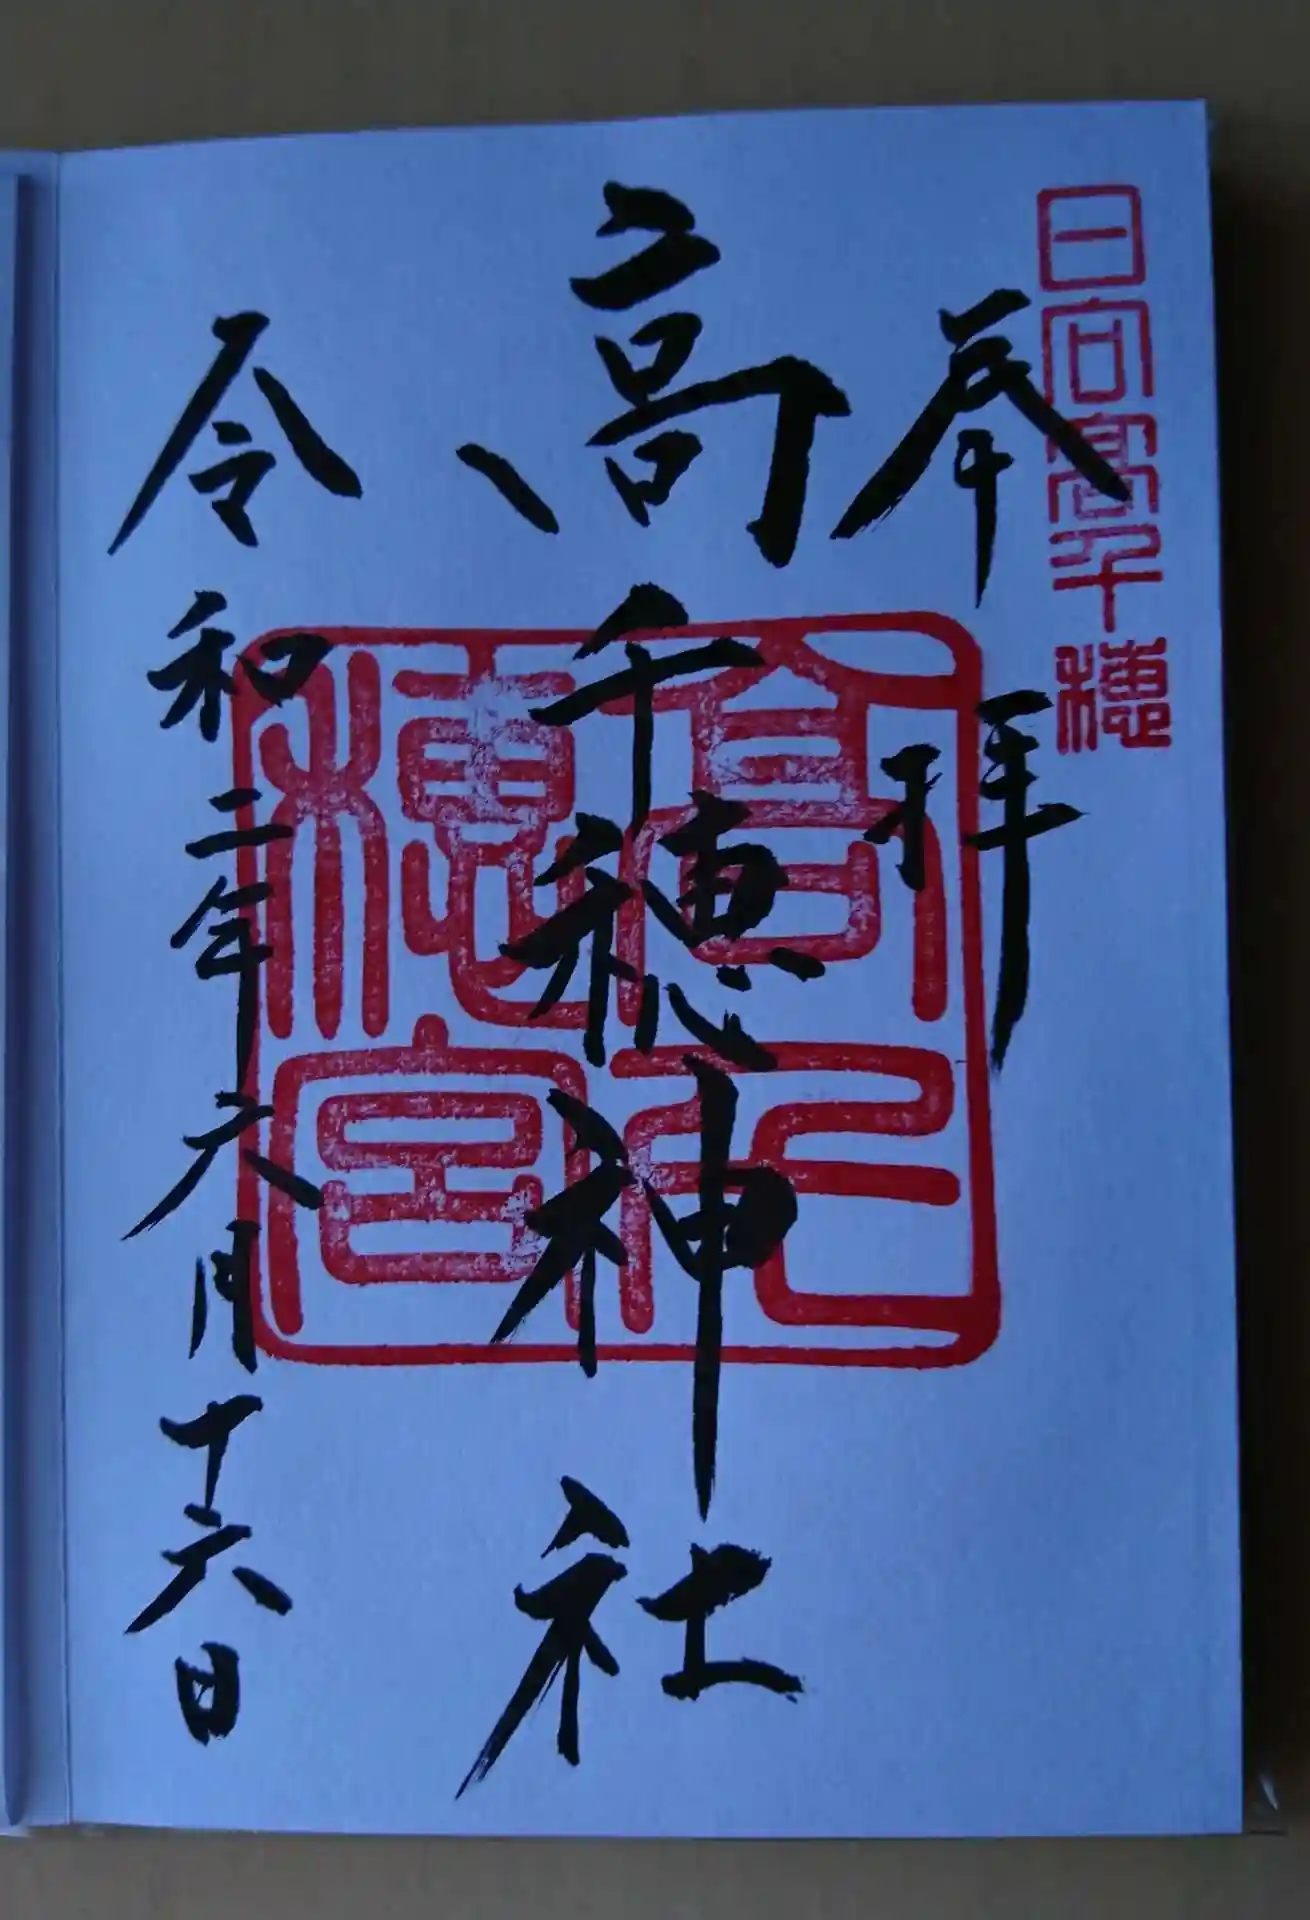 日向高千穂
奉拝
高千穂神社
高千穂宮
令和二年六月十六日